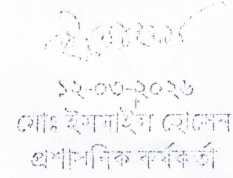 ১২-০৩-২০২৬
মোঃ ইসমাইল হোসেন
প্রশাসনিক কর্মকর্তা